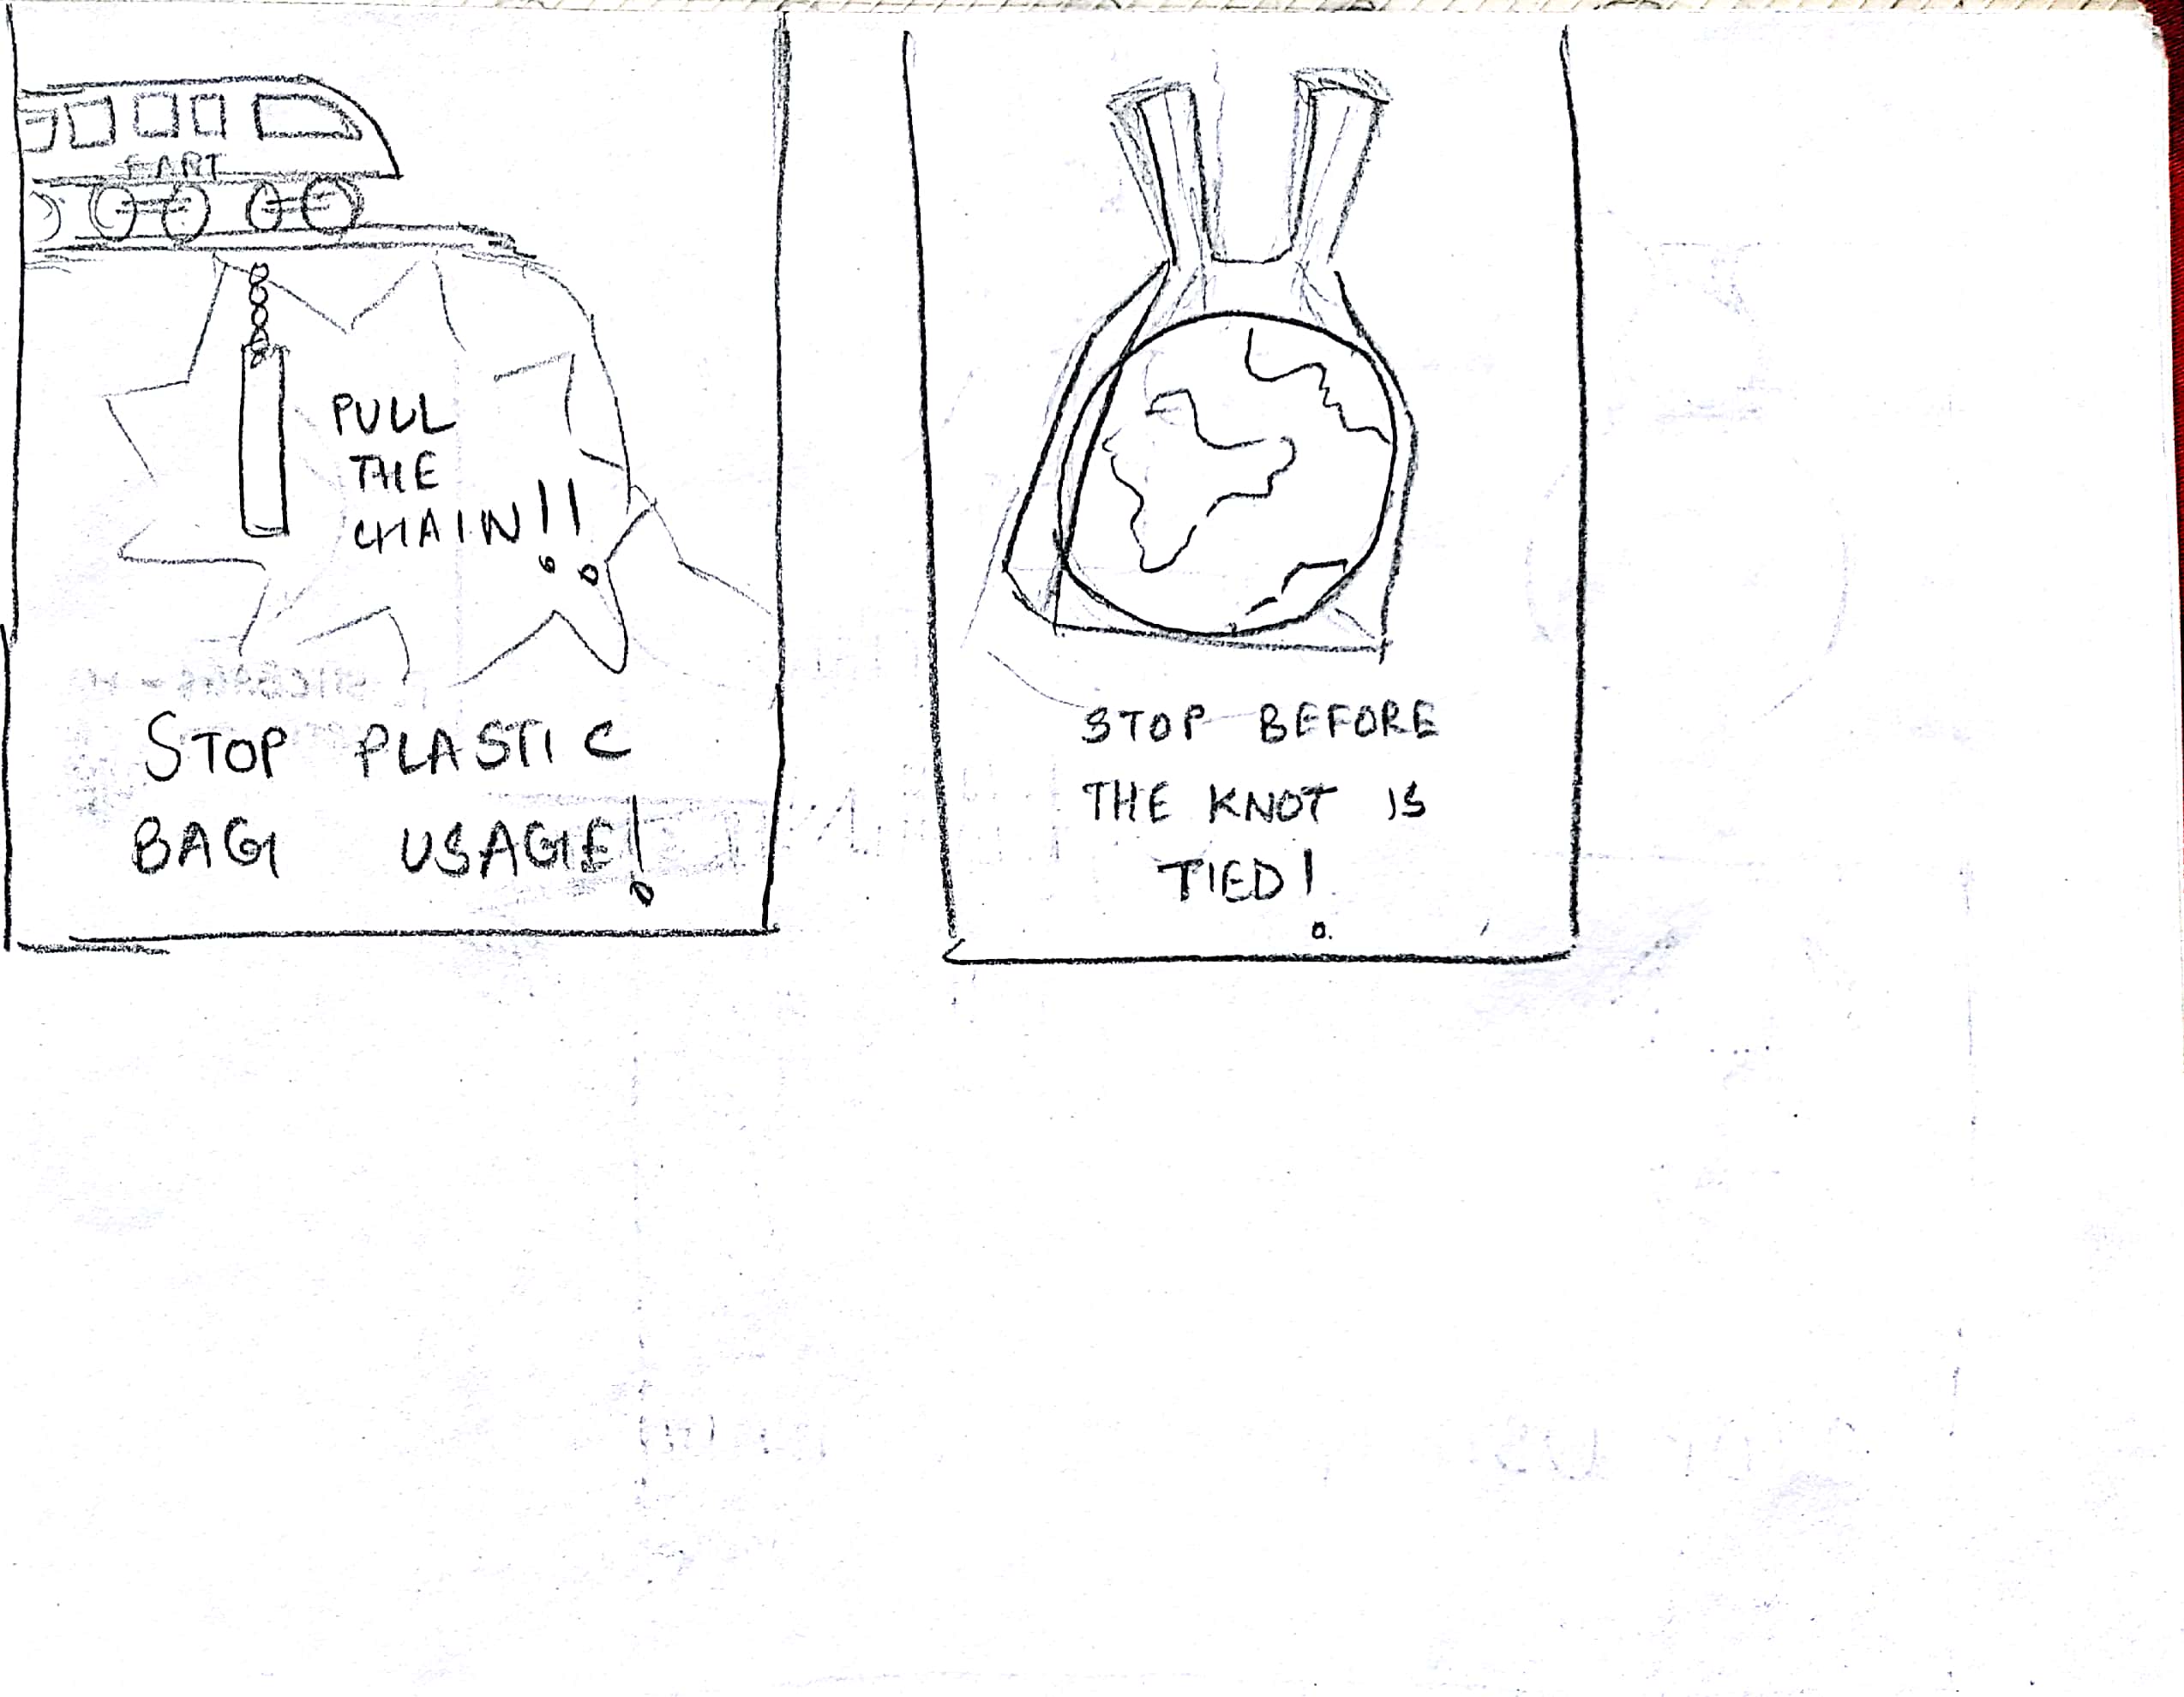 PULL
THE
CHAIN!!
STOP PLASTIC
BAG USAGE!
STOP BEFORE
THE KNOT IS
TIED!